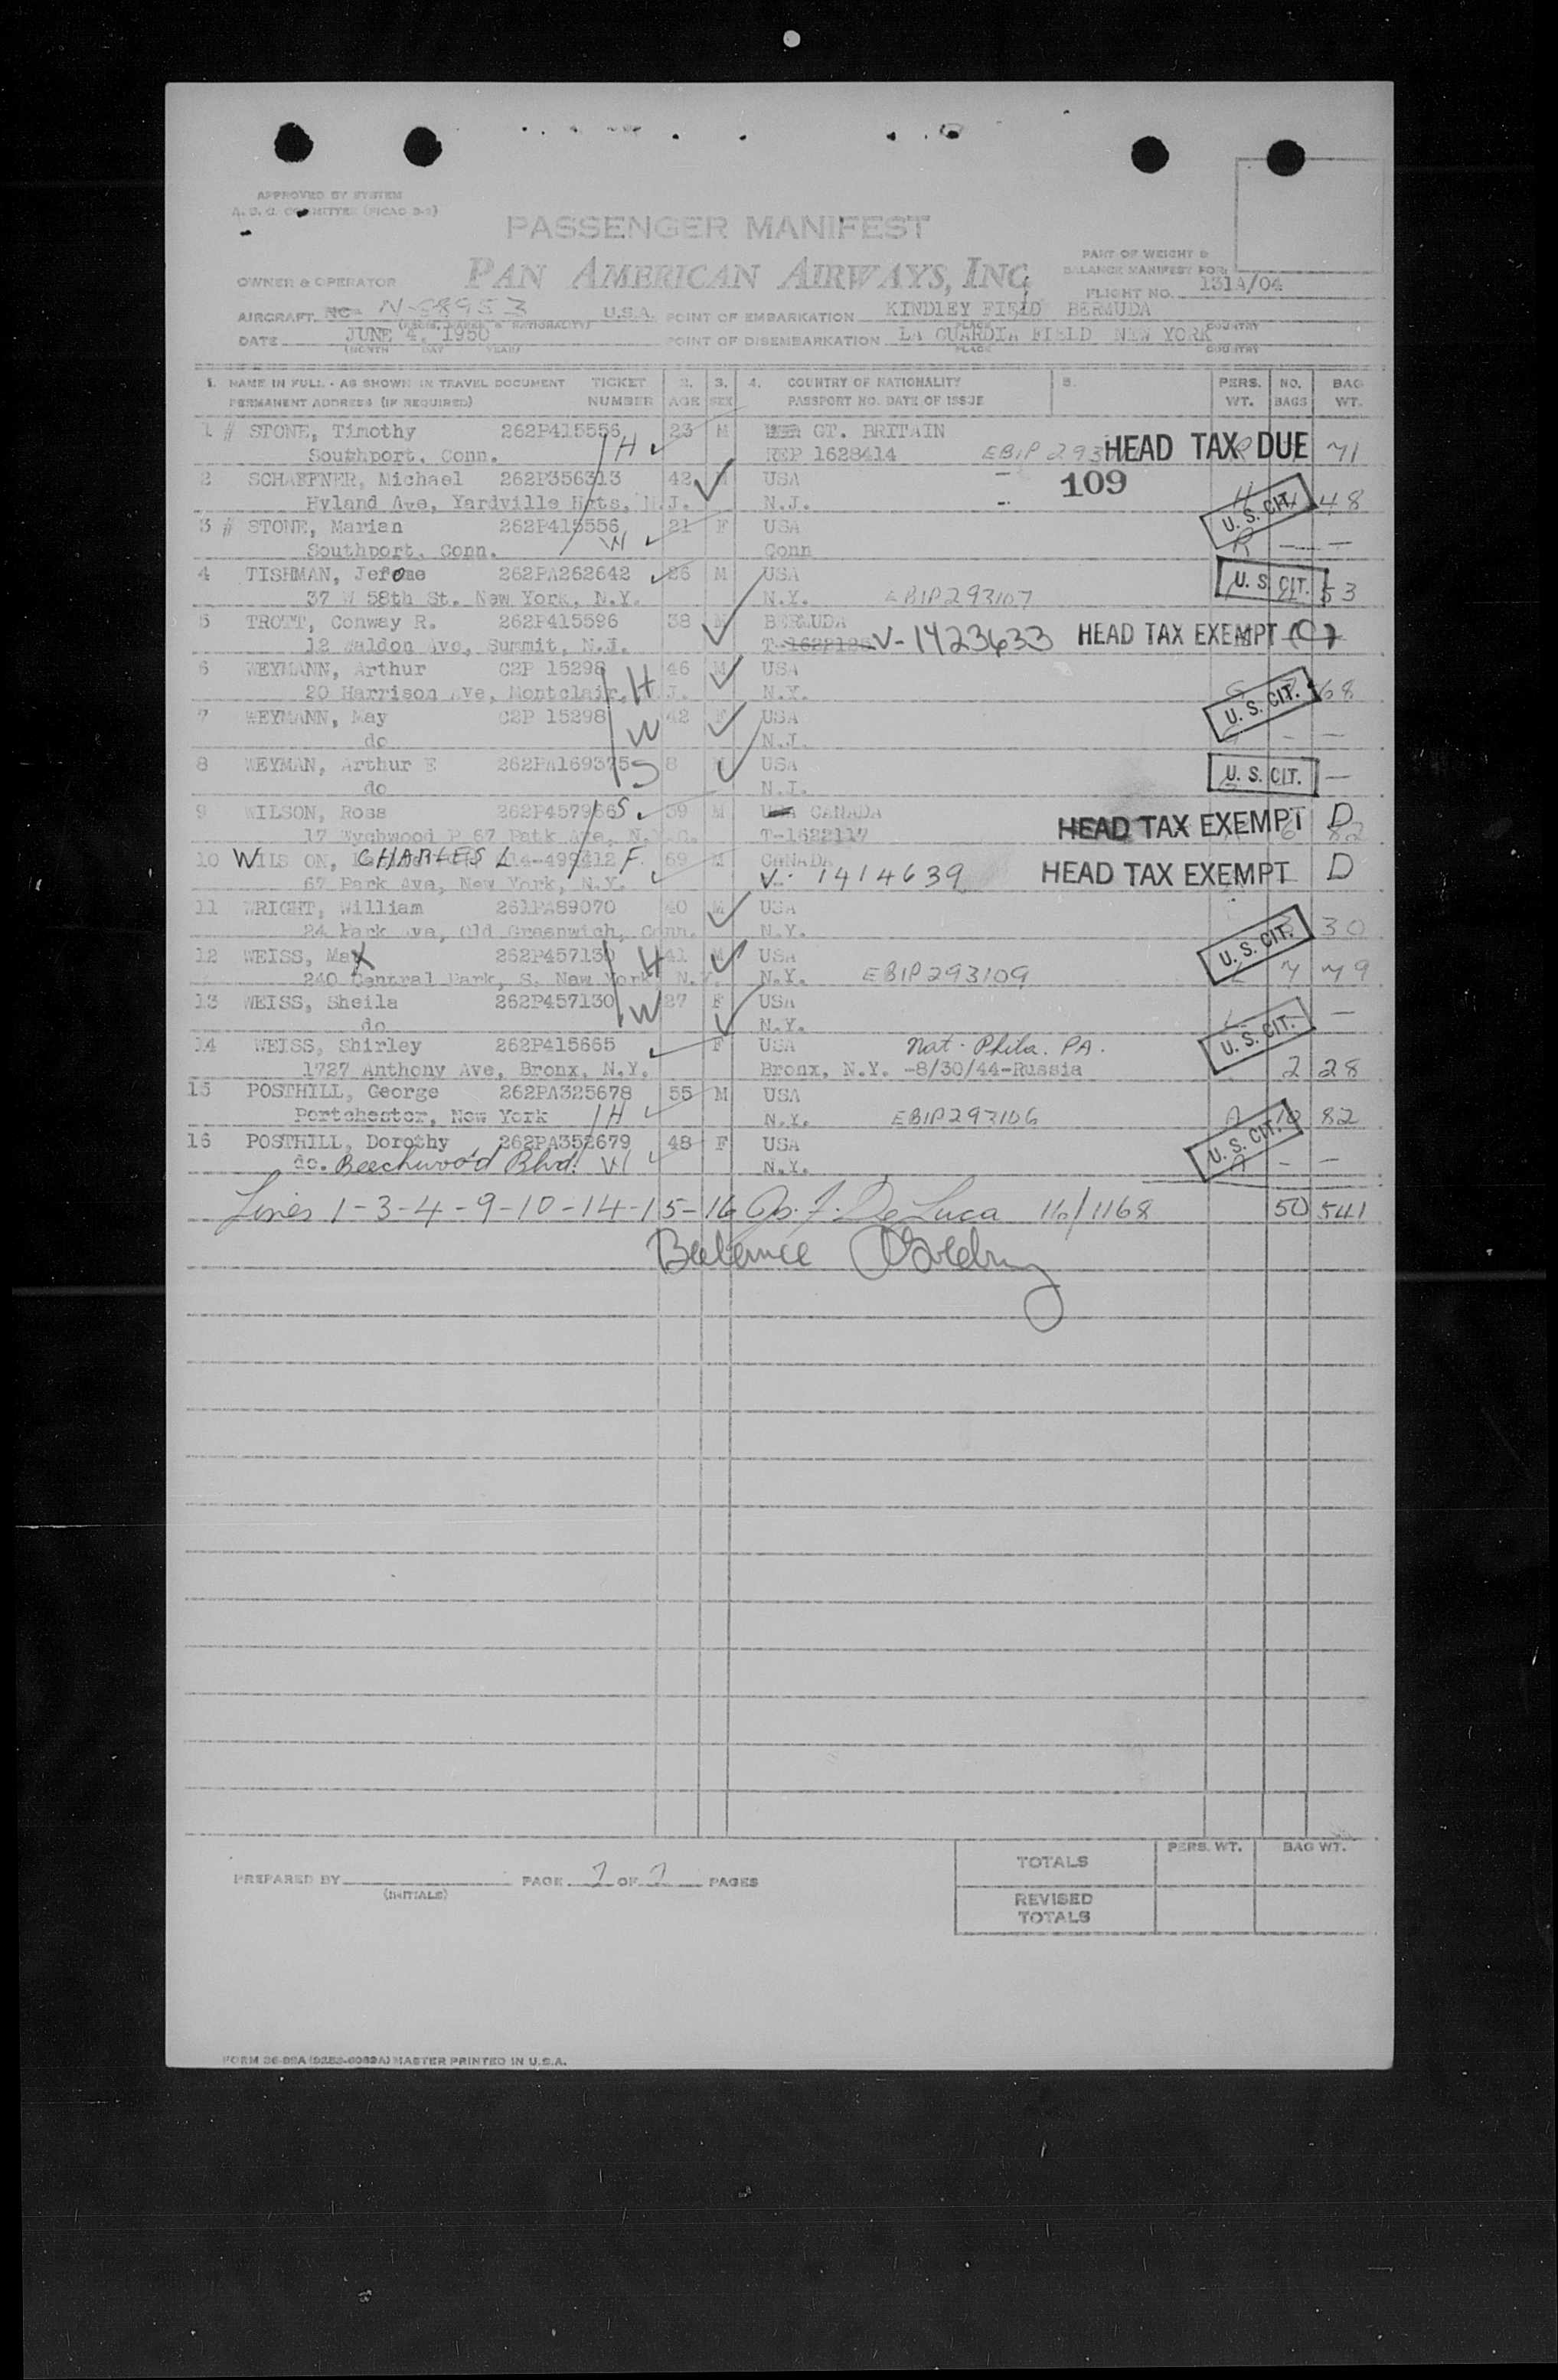 APPROVED BY SYSTEM
A. S. C. COMMITTEE (PICAO
PASSENGER MANIFEST
OWNER & OPERATOR PAN AMERICAN AIRWAYS, INC
PART OF WEIGHT &
BALANCE MANIFEST FOR:
FLIGHT NO. 131A/04
AIRCRAFT NC- N-88953 U.S.A. POINT OF EMBARKATION KINDLEY FIELD BERMUDA
DATE JUNE 4, 1950 POINT OF DISEMBARKATION LA GUARDIA FIELD NEW YORK
(MONTH DAY YEAR) PLACE COUNTRY
1. NAME IN FULL - AS SHOWN IN TRAVEL DOCUMENT TICKET 2. 3. 4. COUNTRY OF NATIONALITY 5. PERS. NO. BAG
PERMANENT ADDRESS (IF REQUIRED) NUMBER AGE SEX PASSPORT NO. DATE OF ISSUE WT. BAGS WT.
1 # STONE, Timothy 262P415556 23 M GT. BRITAIN
Southport, Conn. H REP 1628414 EBIP 293 HEAD TAX DUE 71
2 SCHAFFNER, Michael 262P356313 42 M USA 109
Hyland Ave, Yardville Hgts, N.J. N.J. U. S. CIT. 48
3 # STONE, Marian 262P415556 21 F USA
Southport, Conn. W Conn — —
4 TISHMAN, Jerome 262PA262642 26 M USA U. S. CIT.
37 W 58th St. New York, N.Y. N.Y. EBIP293107 53
5 TROTT, Conway R. 262P415596 38 M BERMUDA
12 Waldon Ave, Summit, N.J. V-1423633 HEAD TAX EXEMPT (C)
6 WEYMANN, Arthur C2P 15298 H 46 M USA
20 Harrison Ave, Montclair, N.J. N.Y. U. S. CIT. 68
7 WEYMANN, May C2P 15298 W 42 F USA
do N.J. — —
8 WEYMAN, Arthur E 262PA169375 S 8 M USA U. S. CIT. —
do N.J.
9 WILSON, Ross 262P457966 S. 39 M CANADA
67 Park Ave, N.Y.C. T-1622117 HEAD TAX EXEMPT D 82
10 WILSON, CHARLES L F. 69 M CANADA
67 Park Ave, New York, N.Y. V- 1414639 HEAD TAX EXEMPT D
11 WRIGHT, William 261PA89070 40 M USA
24 Park Ave, Old Greenwich, Conn. N.Y. U. S. CIT. 30
12 WEISS, Max 262P457130 H 41 M USA
240 Central Park, S. New York, N.Y. N.Y. EBIP293109 7 79
13 WEISS, Sheila 262P457130 W 27 F USA
do N.Y. U. S. CIT. —
14 WEISS, Shirley 262P415665 F USA Nat. Phila. PA.
1727 Anthony Ave, Bronx, N.Y. Bronx, N.Y. -8/30/44-Russia 2 28
15 POSTHILL, George 262PA325678 55 M USA
Portchester, New York H N.Y. EBIP293106 10 82
16 POSTHILL, Dorothy 262PA352679 48 F USA U. S. CIT.
do. Beechwood Blvd. W N.Y. — —
Lines 1-3-4-9-10-14-15-16 Jos. F. De Luca 50 541
PREPARED BY (INITIALS) PAGE 2 OF 2 PAGES
PERS. WT. BAG WT.
TOTALS
REVISED
TOTALS
MASTER PRINTED IN U.S.A.